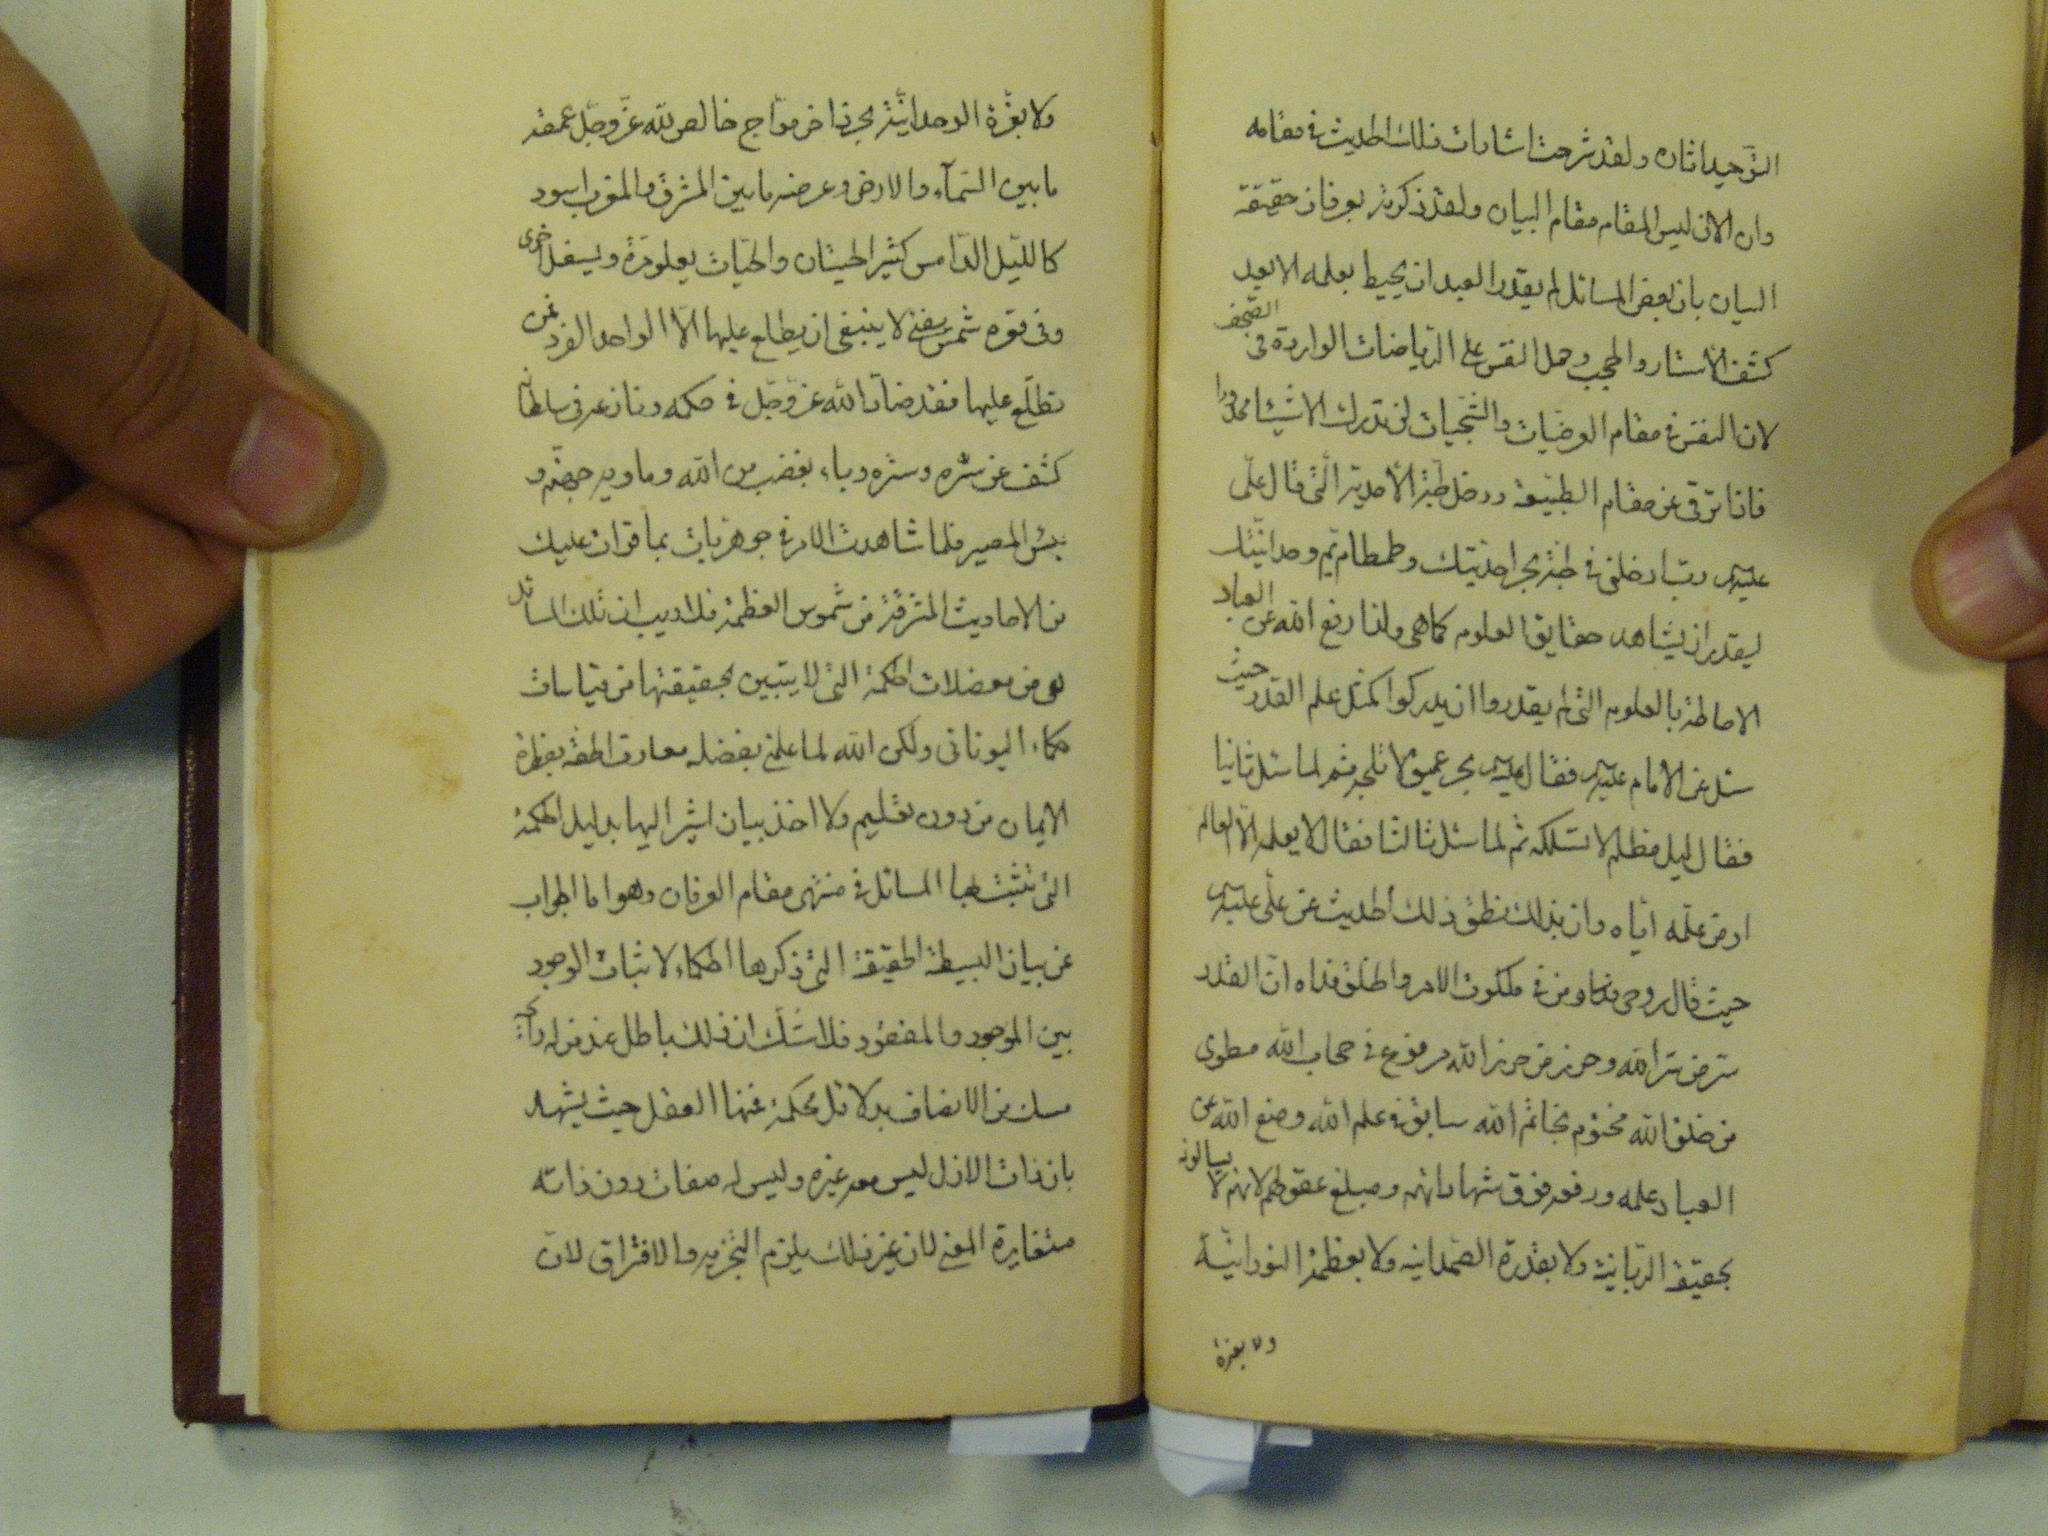 التوحيد اثاره ولقد شرحت اشارات ذلك الحديث في مقامه
وان الان ليس المقام مقام البيان ولقد ذكرته بعرفان حقيقة
البيان بان بعض المسائل لم يقدر العبد ان يحيط بعلمه الا بعد
كشف الأستار والحجب وحمل النفس على الرياضات الواردة في الصحف
لان النفس في مقام العرضيات والشبحيات لن تدرك الا شيئا محدودا
فاذا ترقى عن مقام الطبيعة ودخل لجّة الأحدية الّتي قال علي
عليه‌السلام رب ادخلني في لجّة بحر احديّتك وطمطام يم وحدانيّتك
ليقدر ان يشاهد حقايق العلوم كما هي ولذا رفع الله عن العباد
الاحاطة بالعلوم التي لم يقدروا ان يدركوا كمثل علم القدر حيث
سئل عن الامام عليه‌السلام فقال عليه‌السلام بحر عميق لا تلجه ثم لما سئل ثانيا
فقال ليل مظلم لا تسلكه ثم لما سئل ثالثا فقال لا يعلمه الّا العالم
او من علّمه ايّاه وان بذلك نطق ذلك الحديث عن علي عليه‌السلام
حيث قال روحي فداه ومن في ملكوت الامر والخلق فداه انّ القدر
سرّ من سرّ الله وحرز من حرز الله مرفوع في حجاب الله مطوى
من خلق الله مختوم بخاتم الله سابق في علم الله وضع الله عن
العباد علمه ورفعه فوق شهاداتهم ومبلغ عقولهم لانهم لا ينالونه
بحقيقة الربانية ولا بقدرة الصمدانيه ولا بعظمة النورانيّة
ولا بعزة
ولا بعزّة الوحدانيّة بحر ذاخر موّاج خالص لله عزّ وجلّ عمقه
ما بين السّمآء والارض وعرضه ما بين المشرق والمغرب اسود
كالليّل الدّامس كثير الحيتان والحيّات يعلو مرّة ويسفل اخرى
وفي قعره شمس يضئ لا ينبغي ان يطلع عليها الّا الواحد الفرد فمن
تطلّع عليها فقد ضآدّ الله عزّ وجلّ في حكمه ونازعه في سلطانه
كشف عن سرّه وستره وباء بغضب من الله وماويه جهنّم و
بئس المصير فلما شاهدت الامر في جوهريات بما قرات عليك
من الاحاديث المشرقة من شموس العظمة فلا ريب ان تلك المسائل
لهي من معضلات الحكمة التي لا يتبين بحقيقتها من قياسات
حكماء اليوناني ولكن الله لما علمني بفضله معارف الحقه بفطرة
الايمان من دون تعليم ولا اخذ بيان اشير اليها بدليل الحكمة
التي تثبت بها المسائل في منتهى مقام العرفان وهو اما الجواب
عن بيان البسيطة الحقيقة التي ذكرها الحكماء لاثبات الوجود
بين الموجود والمفقود فلا شك ان ذلك باطل عند من له رائحة
مسك من الانصاف بدلائل محكمة فمنها العقل حيث يشهد
بان ذات الازل ليس معه غيره وليس له صفات دون ذاته
متغايرة المعنى لان غير ذلك يلزم التجزيه والافتراق لانّ